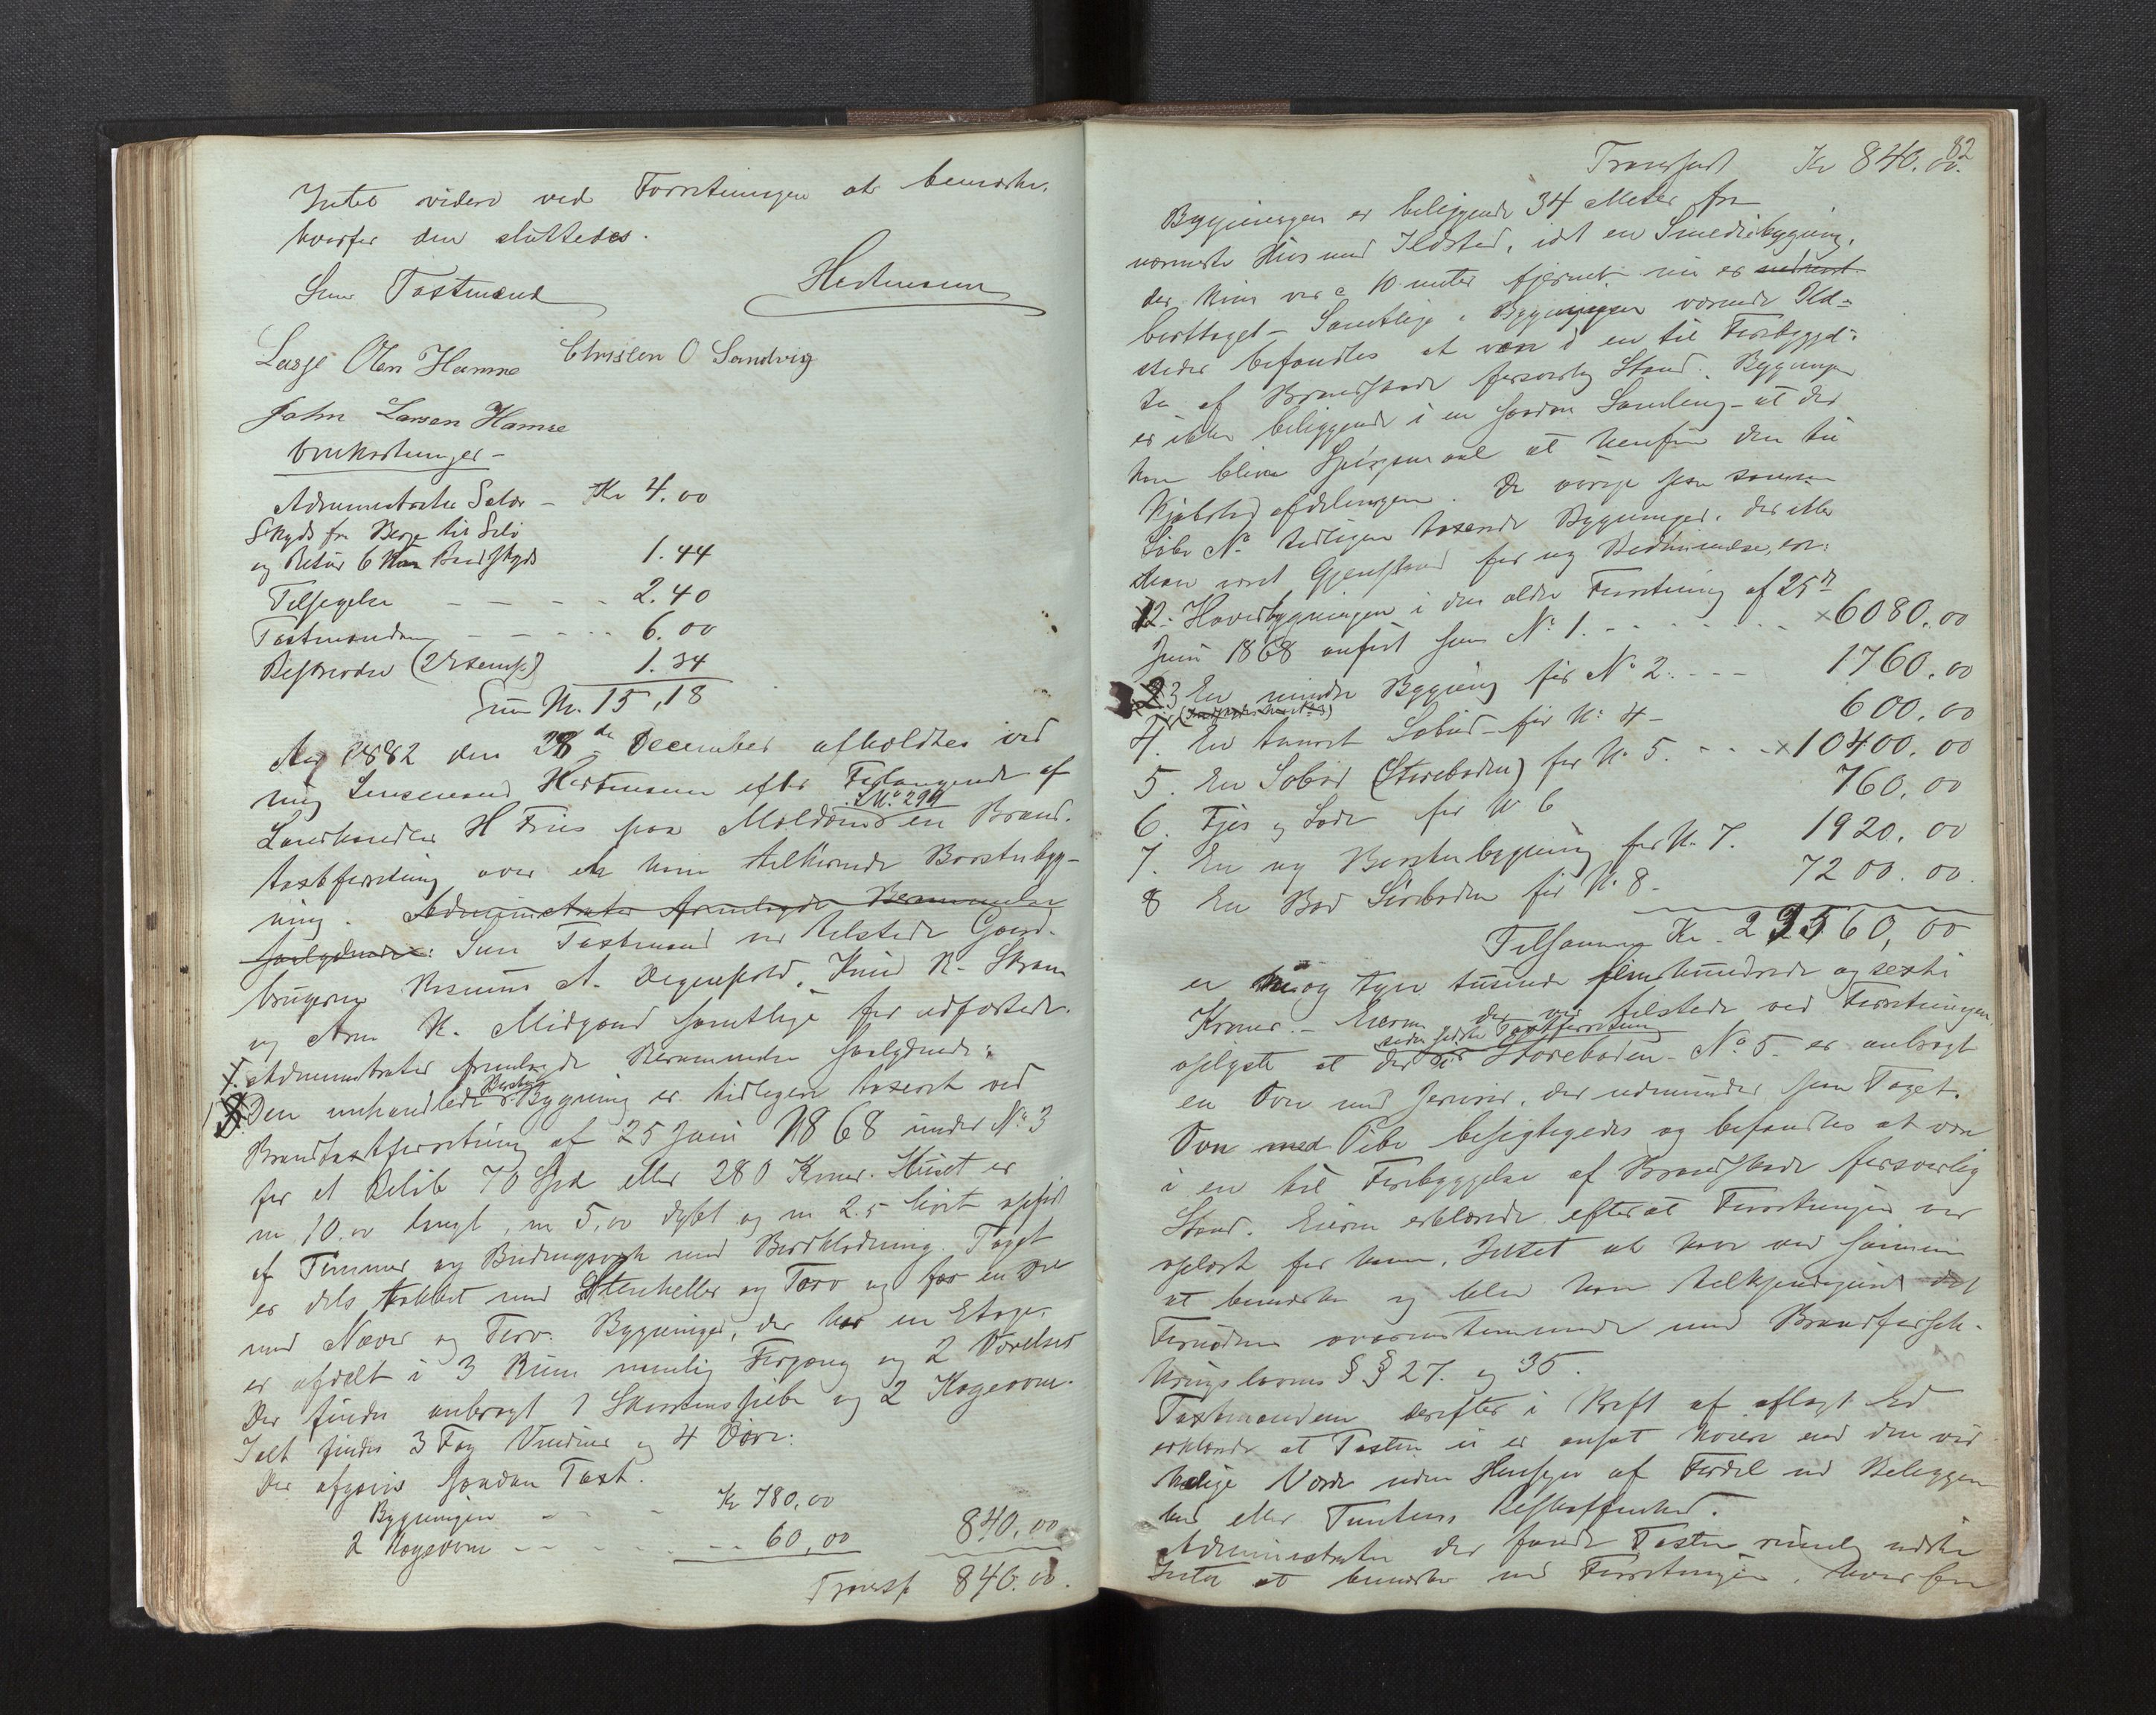 Intet videre ved Forretningen at bemærke,
hvorfor den sluttedes.
Som Taxtmænd Hertensen
Lasse Olsen Hamre Christen O Sandvig
John Larsen Hamre
Omkostninger -
Administrator Salær - Kr 4.00
Skyds fra Berge til Silo
og Retur 6 Baadskyds 1.44
Tilsigelse - - - - 2.40
Taxtmændene - - - - 6.00
Beskreven (2 Exempl) 1.34
Sum Kr. 15,18
Aar 1882 den 28de December afholdtes ved
mig Lensmand Hertensen efter Forlangende af
L.No. 299
Landhandler H Friis paa Moldøen en Brand-
taxtforretning over en ham tilhørende Borstubyg-
ning. Administrator fremlagde Berammelse
saalydende: Som Taxtmænd var tilstede Gaard-
brugerne Rasmus A. Degnepold, Knud R. Skram
og Arne K. Midgaard samtlige før edfæstede.
Administrator fremlagde Berammelse saalydende:
Borstu
1 Den omhandlede Bygning er tidligere taxeret ved
Brandtaxtforretning af 25 Juni 1868 under No 3
for et Beløb 70 Spd eller 280 Kroner. Huset er
m 10.00 langt, m 5,00 dybt og m 2.5 høit opført
af Tømmer og Bindingsværk med Bordklædning. Taget
er dels tækket med Stenheller og Torv og for en Del
med Næver og Torv. Bygningen, der har en Etage,
er afdelt i 3 Rum nemlig Forgang og 2 Værelser
Der findes anbragt 1 Skorstenspibe og 2 Kogeovne.
Ialt findes 3 Fag Vinduer og 4 Døre.
Der afgives saadan Taxt.
Bygningen - - - Kr 780,00
2 Kogeovne - - - - 60,00 840,00
Transp 840.00.
82
Transport Kr 840.00.
Bygningen er beliggende 34 Meter fra
nærmeste Hus med Ildsted, idet en Smediebygning,
der kun var c 10 meter fjernet nu er nedrevet
borttaget - Samtlige i Bygningen værende Ild-
steder befandtes at være i en til Forebyggel-
se af Brandskade forsvarlig Stand. Bygningen
er ikke beliggende i en saadan Samling - at der
kan blive Spørgsmaal at henføre den til
Kjøbstadafdelingen. De øvrige paa samme
Løbe No tidligere taxerede Bygninger, der ikke
have været Gjenstand for ny Bedømmelse, er:
2. Hovedbygningen i den ældre Forretning af 25de
Juni 1868 anført som No 1. - - - - - x6080.00
3 En mindre Bygning før No 2. - - - 1760.00
4. En tømret Søbod - før No 4 - 600.00
5. En Søbod (Storeboden) før No 5. - - - x10400.00
6. Fjøs og Lade før No 6 760.00
7. En ny Borstubygning før No 7. 1920.00
8 En Bod Søreboden før No 8. 7200.00.
Tilsammen Kr. 29560,00
er og tyve tusinde femhundrede og sexti
Kroner. - Eieren der var tilstede ved Forretningen,
siden sidste Taxtforretning
oplyste at der i Storeboden - No 5 - er anbragt
en Ovn med Jernrør, der udmunder paa Taget.
Ovn med Pibe besigtigedes og befandtes at være
i en til Forebyggelse af Brandskade forsvarlig
Stand. Eieren erklærede efterat Forretningen var
oplæst for ham, Intet at have ved samme
at bemærke og blev han tilkjendegivet det
Fornødne overensstemmende med Brandforsik-
kringslovens §§ 27. og 35.
Taxtmændene derefter i Kraft af aflagt Ed
erklærede at Taxten ei er ansat høiere end den vir-
kelige Værdi uden Hensyn af Fordel ved Beliggen-
hed eller Tomtens Beskaffenhed.
Administrator der fandt Taxten rimelig vidste
Intet at bemærke ved Forretningen, hvorfor